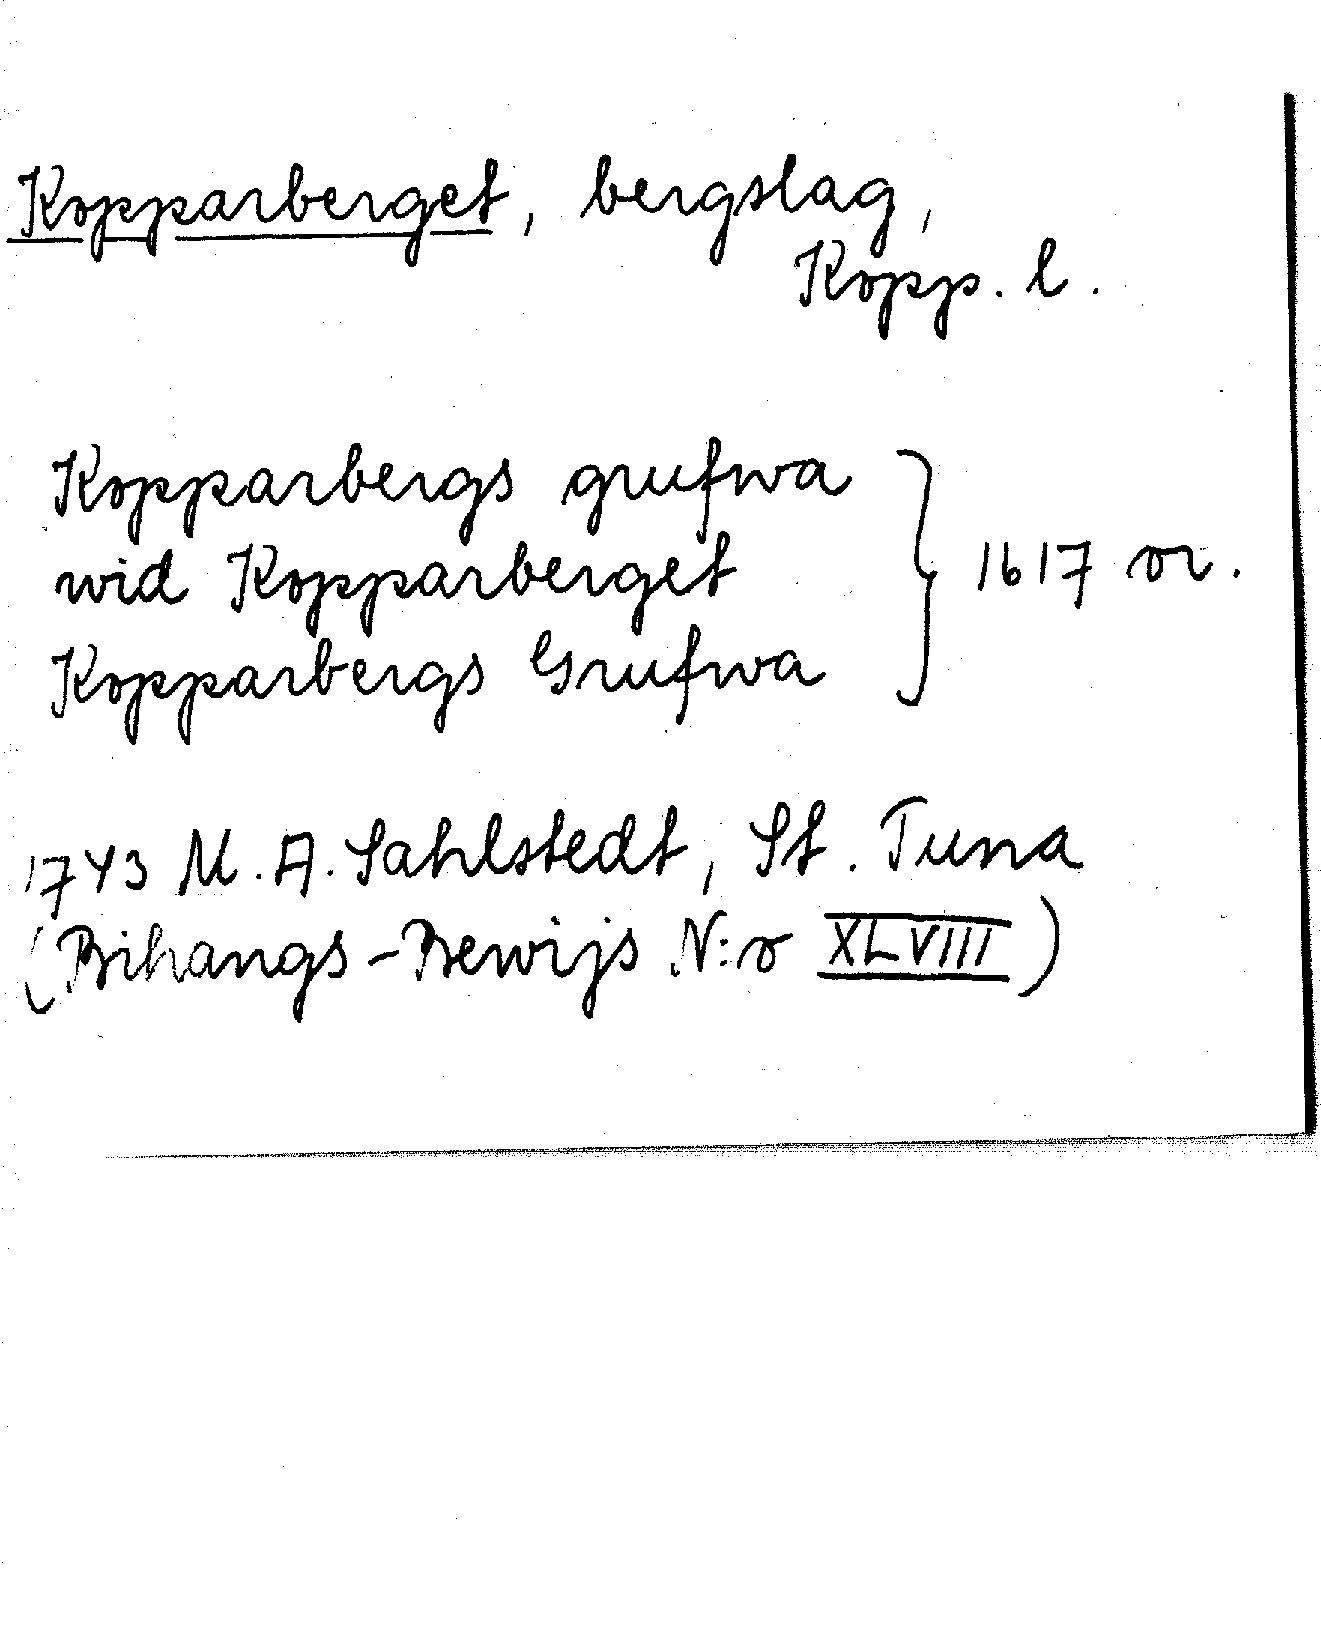 Kopparberget, bergslag,
Kopp. l.
Kopparbergs grufwa
wid Kopparberget
Kopparbergs Grufwa
} 1617 or.
1743 M. A. Sahlstedt, St. Tuna
(Bihangs-Bewijs N:o XLVIII)